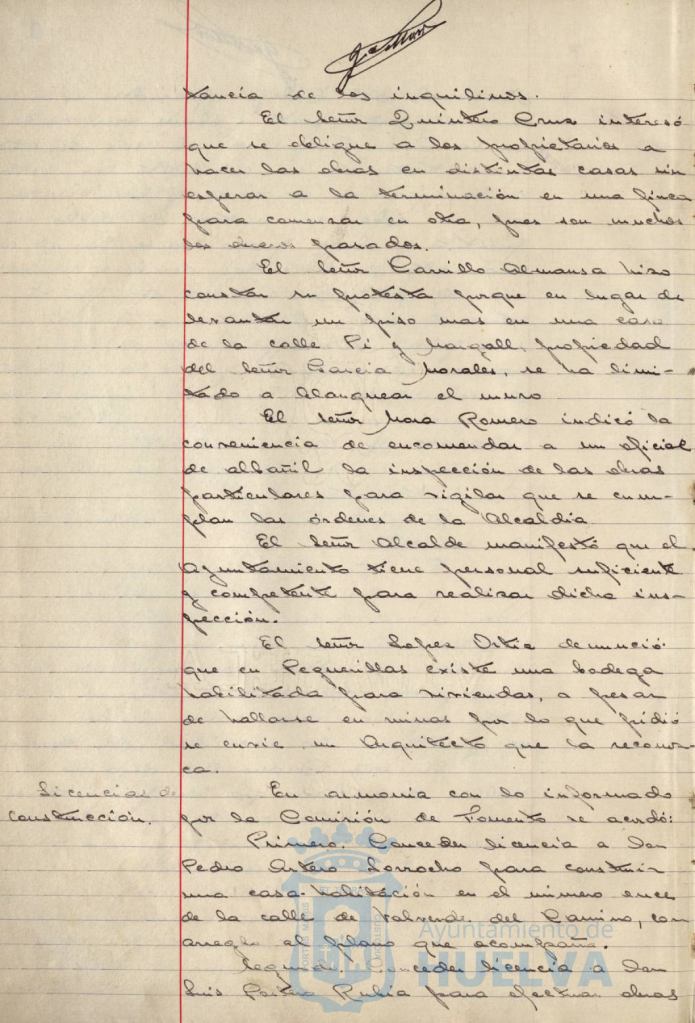 tancia de los inquilinos.
El Señor Quintero Cruz interesó
que se obligue a los propietarios a
hacer las obras en distintas casas sin
esperar a la terminación en una finca
para comenzar en otra, pues son muchos
los obreros parados.
El Señor Carrillo Almansa hizo
constar su protesta porque en lugar de
levantar un piso mas en una casa
de la calle Pi y Margall, propiedad
del Señor García Morales, se ha limi-
tado a blanquear el muro
El Señor Mora Romero indicó la
conveniencia de encomendar a un oficial
de albañil la inspección de las obras
particulares para vigilar que se cum-
plan las órdenes de la Alcaldía
El Señor Alcalde manifestó que el
Ayuntamiento tiene personal suficiente
y competente para realizar dicha ins-
pección.
El Señor Lopez Ortiz denunció
que en Peguerillas existe una bodega
habilitada para viviendas, a pesar
de hallarse en ruinas por lo que pidió
se envie un Arquitecto que la reconoz-
ca.
Licencias de
construcción.
En armonia con lo informado
por la Comisión de Fomento se acordó:
Primero. Conceder licencia a Don
Pedro Artero Lorrocho para construir
una casa-habitación en el número once
de la calle de Valverde del Camino, con
arreglo al plano que acompaña.
Segundo. Conceder licencia a Don
Luis Rubia para efectuar obras
Ayuntamiento de
HUELVA